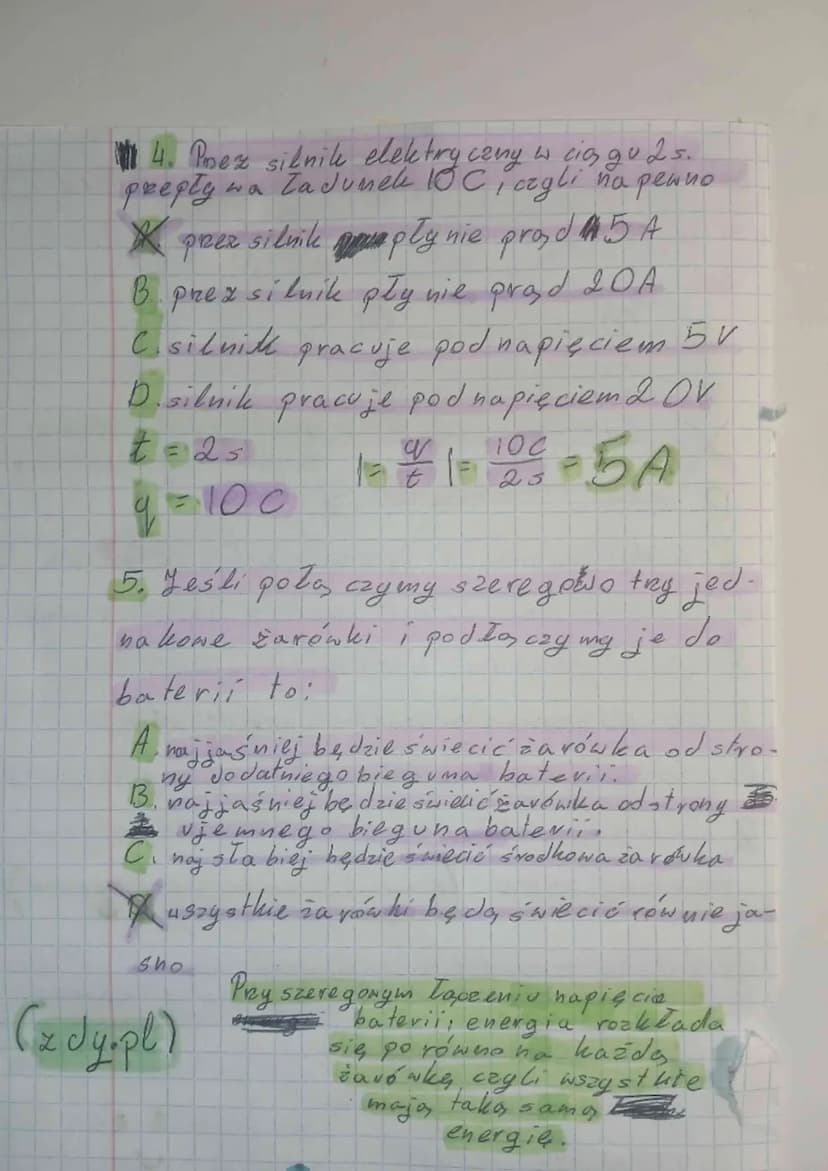 4. Przez silnik elektryczny w ciągu 2 s.
przepływa ładunek 10 C, czyli na pewno
A. przez silnik płynie prąd 5 A
B. przez silnik płynie prąd 20A
C. silnik pracuje pod napięciem 5 V
D. silnik pracuje pod napięciem 20V
t = 2s
I = q/t I = 10C/2s = 5A
q = 10 C
5. Jeśli połączymy szeregowo trzy jed-
nakowe żarówki i podłączymy je do
baterii to:
A. najjaśniej będzie świecić żarówka od stro-
ny dodatniego bieguna baterii.
B. najjaśniej będzie świecić żarówka od strony
ujemnego bieguna baterii.
C. najsłabiej będzie świecić środkowa żarówka
D. wszystkie żarówki będą świecić równie ja-
sno
Przy szeregowym łączeniu napięcie
baterii; energia rozkłada
(zdy.pl)
się po równo na każdą
żarówkę, czyli wszystkie
mają taką samą
energię.